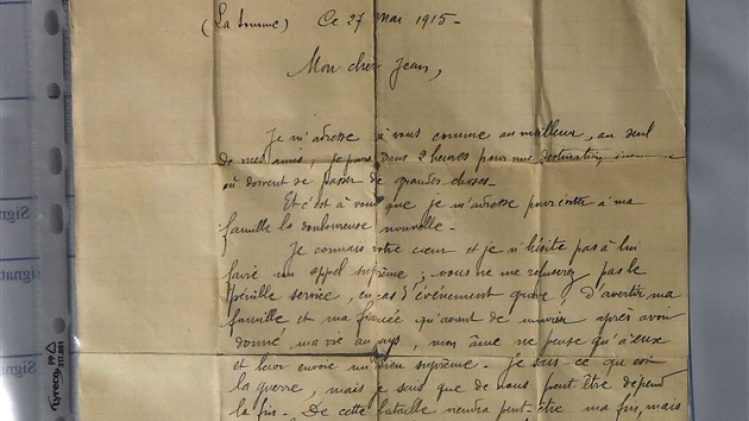 (La Somme) Ce 27 Mai 1915-
Mon cher Jean,
Je m'adresse à vous comme au meilleur, au seul
de mes amis, je pars dans 2 heures pour une destination
où doivent se passer de grandes choses-
Et c'est à vous que je m'adresse pour éviter à ma
famille la douloureuse nouvelle-
Je connais votre cœur et je n'hésite pas à lui
faire un appel suprême; vous ne me refuserez pas le
pénible service, en cas d'événement grave, d'avertir ma
famille et ma fiancée qu'avant de mourir après avoir
donné ma vie au pays, mon âme ne pense qu'à eux
et leur envoie un adieu suprême- Je sais ce qu'est
la guerre, mais je sais que de nous peut être dépend
la fin- De cette bataille viendra peut-être ma fin, mais
Signa
Signat
Signa
Tyreco PP
317.881